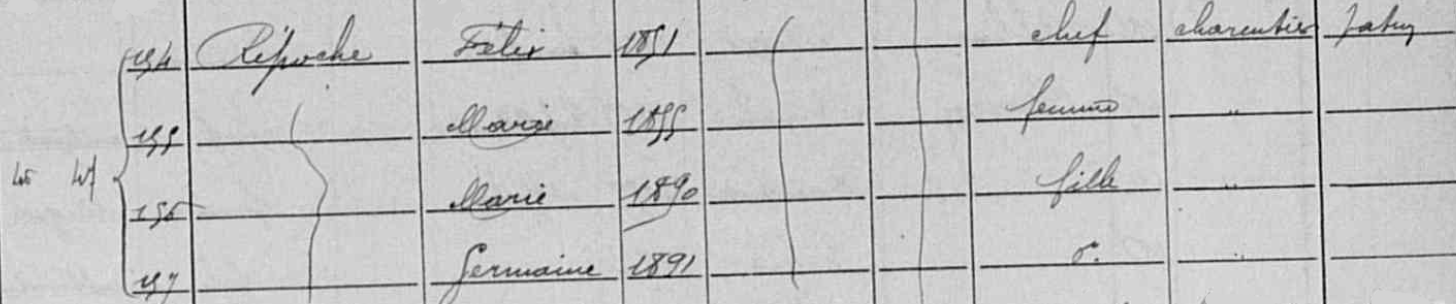 194 Repoche Félix 1851 chef charentier Patry
195 Marie 1855 femme "
45 47 196 Marie 1890 fille "
197 Germaine 1891 d. "